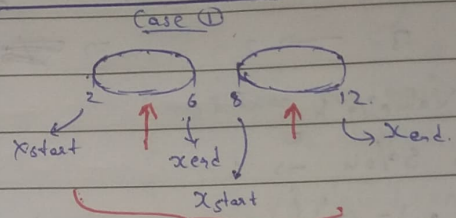 Case ①
2 6 8 12.
xstart xend xend.
xstart